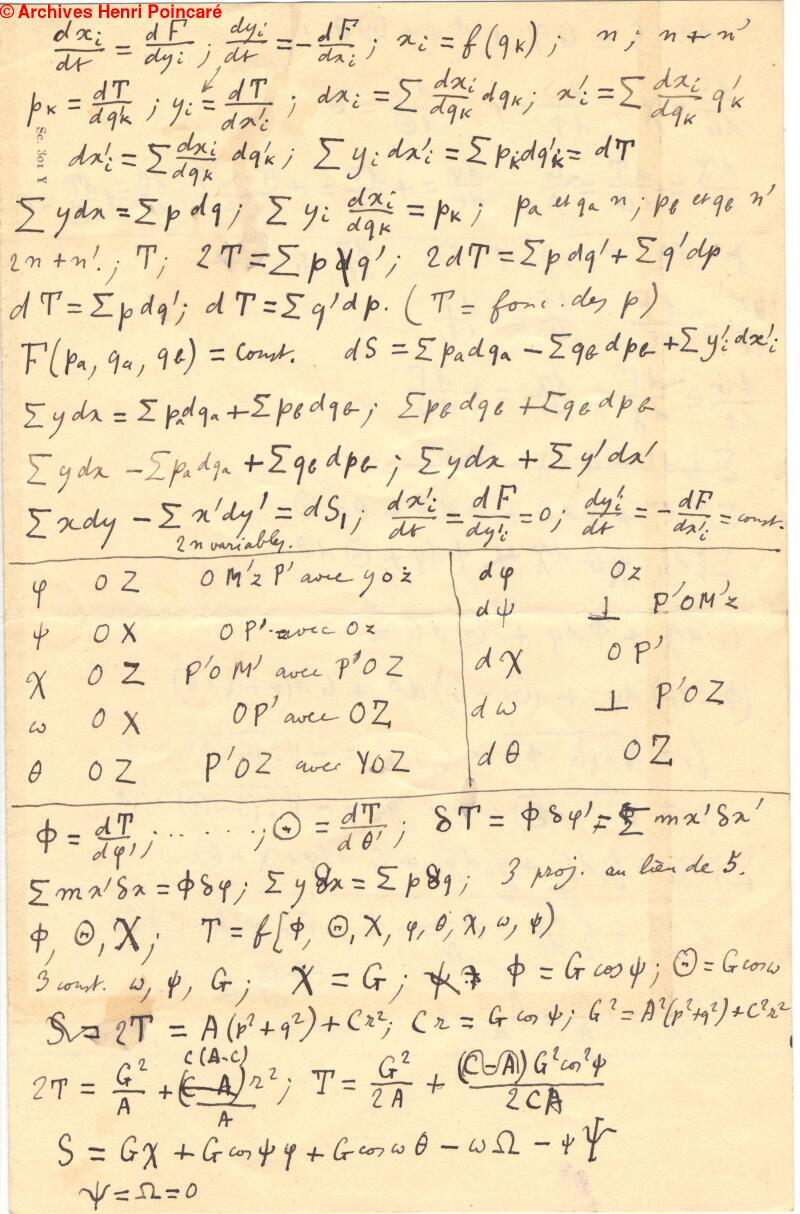 © Archives Henri Poincaré
dx_i/dt = dF/dy_i ; dy_i/dt = -dF/dx_i ; x_i = f(q_K) ; n ; n + n'
p_K = dT/dq'_K ; y_i = dT/dx'_i ; dx_i = Σ dx_i/dq_K dq_K ; x'_i = Σ dx_i/dq_K q'_K
Sc. 301 Y
dx'_i = Σ dx_i/dq_K dq'_K ; Σ y_i dx'_i = Σ p_K dq'_K = dT
Σ y dx = Σ p dq ; Σ y_i dx_i/dq_K = p_K ; p_a et q_a n ; p_b et q_b n'
2n + n'. ; T ; 2T = Σ p q' ; 2dT = Σ p dq' + Σ q' dp
dT = Σ p dq' ; dT = Σ q' dp. (T = fonc. des p)
F(p_a, q_a, q_b) = Const. dS = Σ p_a dq_a - Σ q_b dp_b + Σ y'_i dx'_i
Σ y dx = Σ p_a dq_a + Σ p_b dq_b ; Σ p_b dq_b + Σ q_b dp_b
Σ y dx - Σ p_a dq_a + Σ q_b dp_b ; Σ y dx + Σ y' dx'
Σ x dy - Σ x' dy' = dS_1 ; dx'_i/dt = dF/dy'_i = 0 ; dy'_i/dt = -dF/dx'_i = const.
2n variables.
φ OZ OM'z P' avec yoz
ψ OX OP' avec Oz
χ OZ P'OM' avec P'OZ
ω OX OP' avec OZ
θ OZ P'OZ avec YOZ
dφ Oz
dψ ⊥ P'OM'z
dχ OP'
dω ⊥ P'OZ
dθ OZ
Φ = dT/dφ' ; . . . . . ; Θ = dT/dθ' ; δT = Φ δφ' = Σ m x' δx'
Σ m x' δx = Φ δφ ; Σ y δx = Σ p δq ; 3 proj. au lieu de 5.
Φ, Θ, X ; T = f[Φ, Θ, X, φ, θ, χ, ω, ψ)
3 const. ω, ψ, G ; X = G ; Φ = G cos ψ ; Θ = G cos ω
2T = A(p² + q²) + Cr² ; Cr = G cos ψ ; G² = A²(p² + q²) + C²r²
2T = G²/A + C(A-C)/A r² ; T = G²/2A + (C-A) G² cos² ψ/2CA
S = Gχ + G cos ψ φ + G cos ω θ - ωΩ - ψΨ
Ψ = Ω = 0